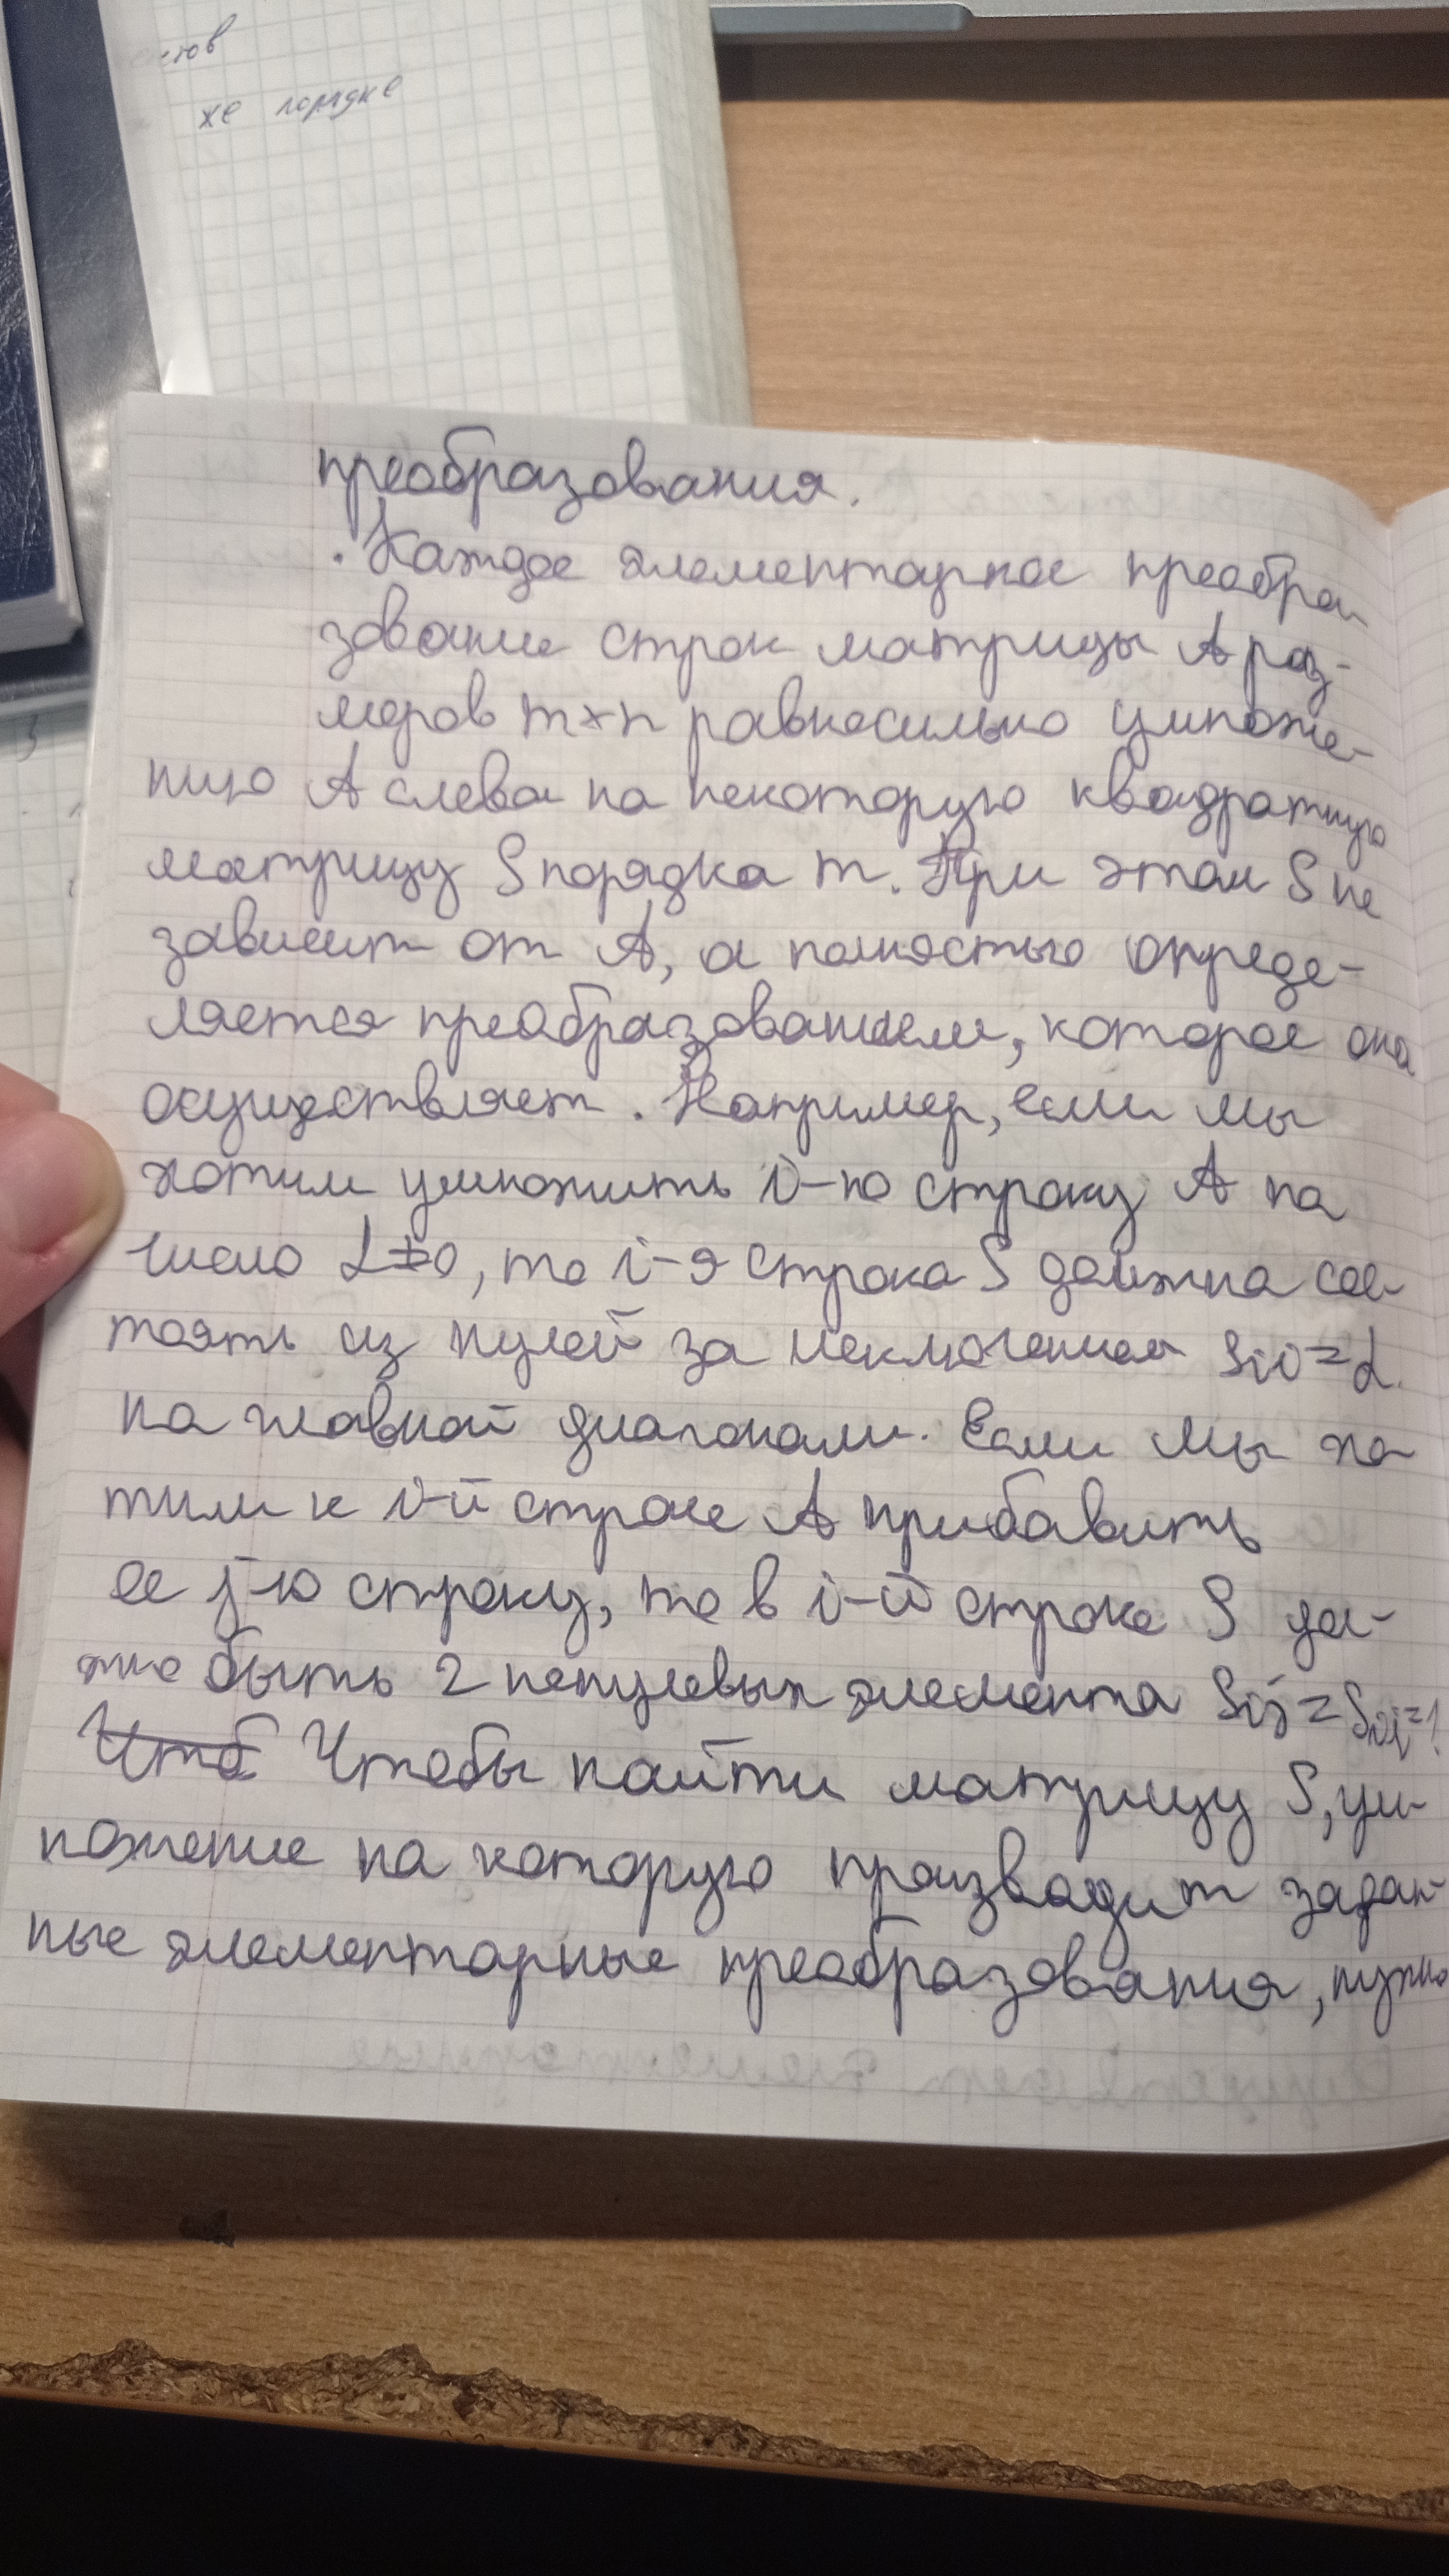 же порядке
преобразования.
. Каждое элементарное преобра
зование строк матрицы A раз-
меров m×n равносильно умноже-
нию A слева на некоторую квадратную
матрицу S порядка m. При этом S не
зависит от A, а полностью опреде-
ляется преобразованием, которое она
осуществляет. Например, если мы
хотим умножить i-ю строку A на
число α≠0, то i-я строка S должна сос-
тоять из нулей за исключением Sii=α
на главной диагонали. Если мы хо
тим к i-й строке A прибавить
ее j-ю строку, то в i-й строке S до-
жно быть 2 ненулевых элемента Sij=Sii=1
Чтоб Чтобы найти матрицу S, ум-
ножение на которую производит задан-
ные элементарные преобразования, нужно